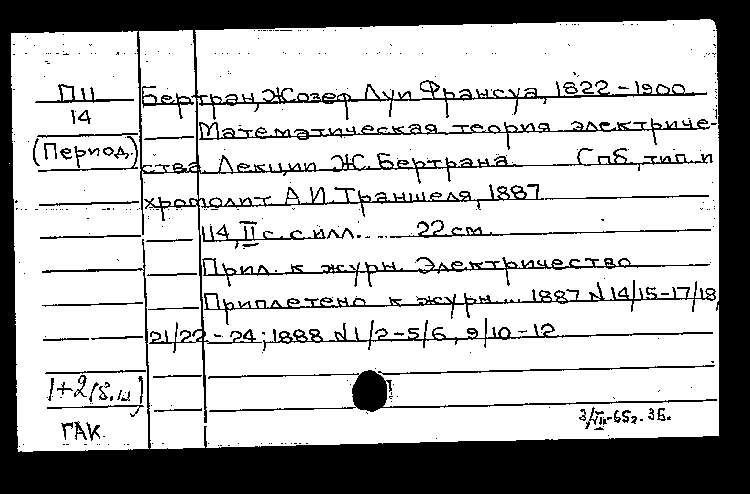 П11
14
(Период.)
Бертран, Жозеф Луи Франсуа, 1822-1900.
Математическая теория электриче-
ства. Лекции Ж. Бертрана. Спб, тип. и
хромолит. А.И. Траншеля, 1887
114, II с. с илл. 22 см.
Прил. к журн. Электричество
Приплетено к журн... 1887 N 14/15-17/18,
21/22-24; 1888 N 1/2-5/6, 9/10-12
1+2
ГАК.
65г. 3Б.